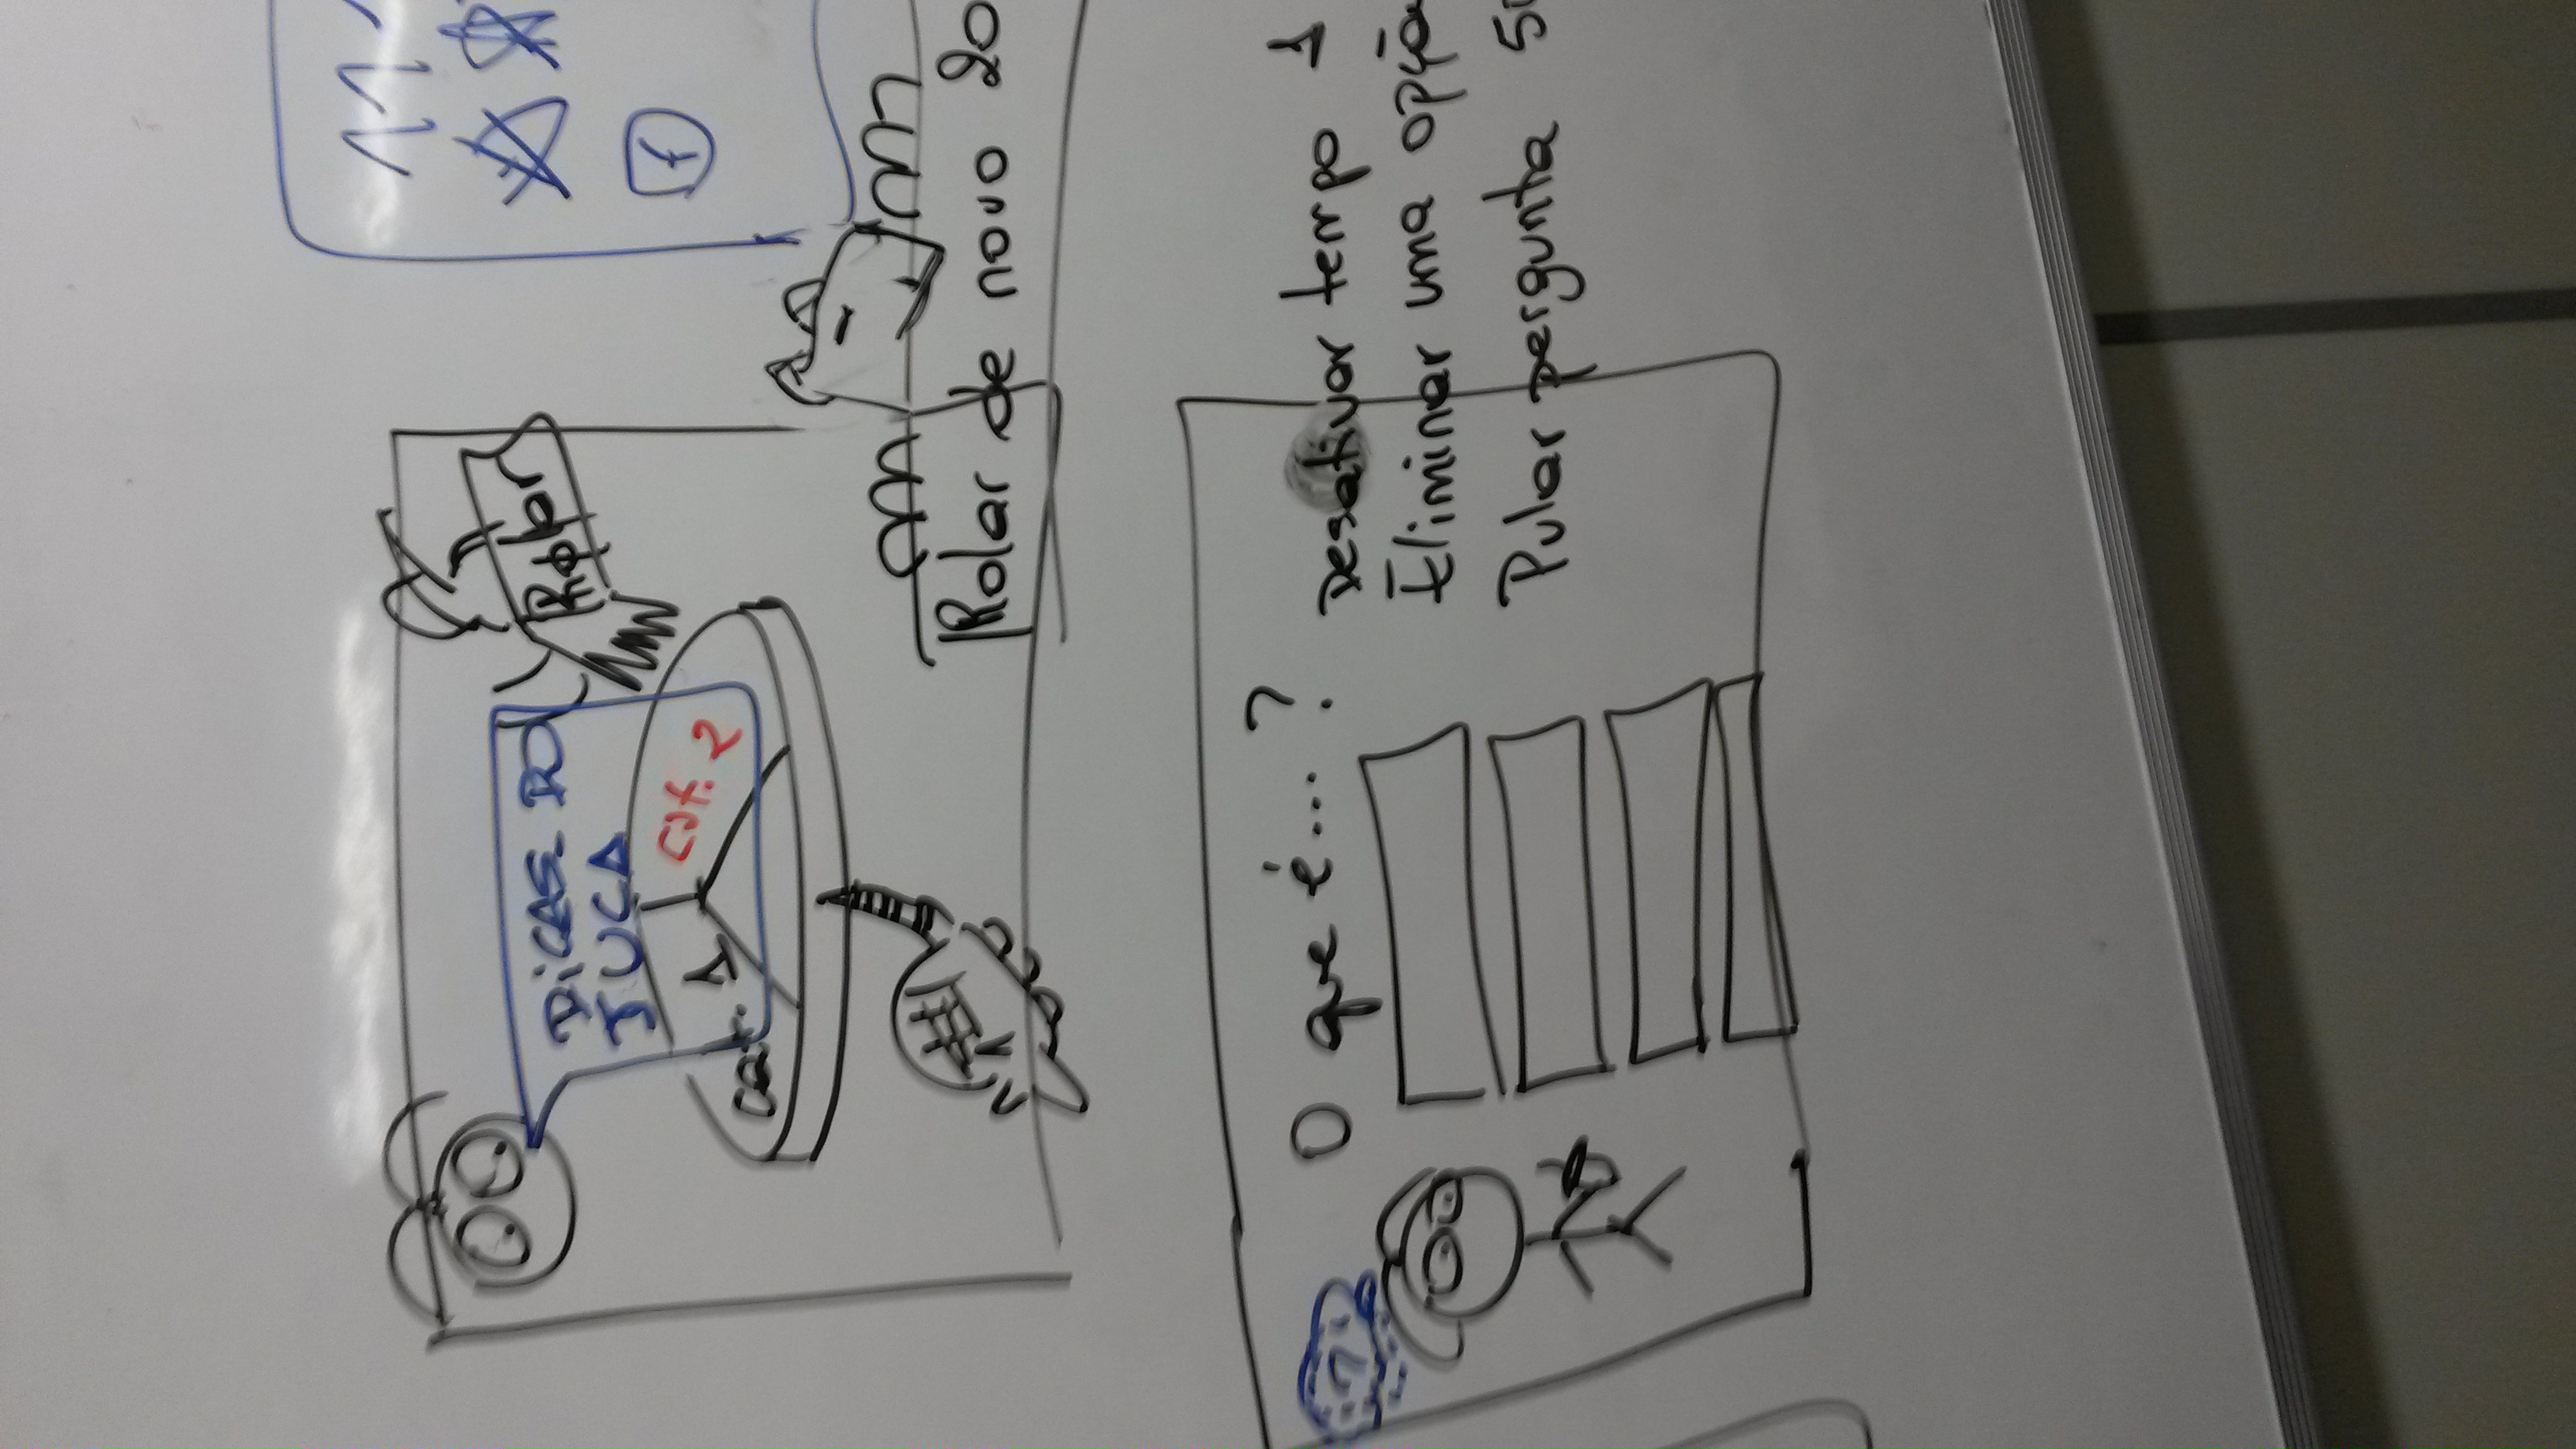 DICAS DO
JUCA
Rolar
cat. 1
cat. 2
f
Rolar de novo 20
O que é...?
?
Desativar tempo 1
Eliminar uma opção
Pular pergunta 50